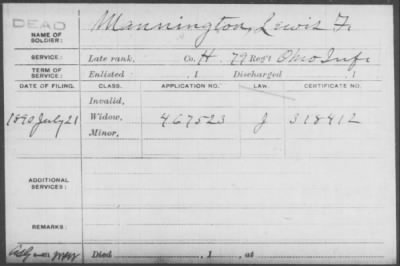 DEAD
Mannington, Lewis F.
NAME OF
SOLDIER:
SERVICE:
Late rank, Co. H. 79 Reg't Ohio Inf.
TERM OF
SERVICE:
Enlisted , 1 Discharged , 1
DATE OF FILING.
CLASS.
APPLICATION NO.
LAW.
CERTIFICATE NO.
Invalid,
1890 July 21
Widow, 467523 J 318412
Minor,
ADDITIONAL
SERVICES:
REMARKS:
Died , 1 , at